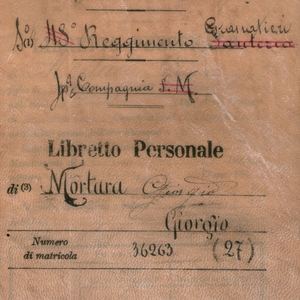 48° Reggimento Granatieri Fanteria
Compagnia S. M.
Libretto Personale
di (3) Mortara Giorgio
Giorgio
Numero di matricola 36263 (27)